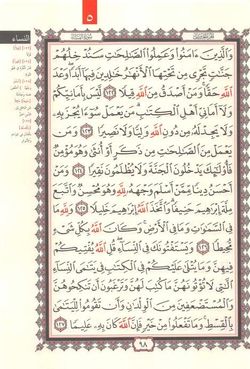 ٥
النساء
وَٱلَّذِينَ ءَامَنُوا۟ وَعَمِلُوا۟ ٱلصَّٰلِحَٰتِ سَنُدْخِلُهُمْ
جَنَّٰتٍ تَجْرِى مِن تَحْتِهَا ٱلْأَنْهَٰرُ خَٰلِدِينَ فِيهَآ أَبَدًا وَعْدَ
ٱللَّهِ حَقًّا وَمَنْ أَصْدَقُ مِنَ ٱللَّهِ قِيلًا ١٢٢ لَّيْسَ بِأَمَانِيِّكُمْ
وَلَآ أَمَانِىِّ أَهْلِ ٱلْكِتَٰبِ مَن يَعْمَلْ سُوٓءًا يُجْزَ بِهِۦ
وَلَا يَجِدْ لَهُۥ مِن دُونِ ٱللَّهِ وَلِيًّا وَلَا نَصِيرًا ١٢٣ وَمَن
يَعْمَلْ مِنَ ٱلصَّٰلِحَٰتِ مِن ذَكَرٍ أَوْ أُنثَىٰ وَهُوَ مُؤْمِنٌ
فَأُو۟لَٰٓئِكَ يَدْخُلُونَ ٱلْجَنَّةَ وَلَا يُظْلَمُونَ نَقِيرًا ١٢٤ وَمَنْ
أَحْسَنُ دِينًا مِّمَّنْ أَسْلَمَ وَجْهَهُۥ لِلَّهِ وَهُوَ مُحْسِنٌ وَٱتَّبَعَ
مِلَّةَ إِبْرَٰهِيمَ حَنِيفًا وَٱتَّخَذَ ٱللَّهُ إِبْرَٰهِيمَ خَلِيلًا ١٢٥ وَلِلَّهِ مَا
فِى ٱلسَّمَٰوَٰتِ وَمَا فِى ٱلْأَرْضِ وَكَانَ ٱللَّهُ بِكُلِّ شَىْءٍ
مُّحِيطًا ١٢٦ وَيَسْتَفْتُونَكَ فِى ٱلنِّسَآءِ قُلِ ٱللَّهُ يُفْتِيكُمْ
فِيهِنَّ وَمَا يُتْلَىٰ عَلَيْكُمْ فِى ٱلْكِتَٰبِ فِى يَتَٰمَى ٱلنِّسَآءِ
ٱلَّٰتِى لَا تُؤْتُونَهُنَّ مَا كُتِبَ لَهُنَّ وَتَرْغَبُونَ أَن تَنكِحُوهُنَّ
وَٱلْمُسْتَضْعَفِينَ مِنَ ٱلْوِلْدَٰنِ وَأَن تَقُومُوا۟ لِلْيَتَٰمَىٰ
بِٱلْقِسْطِ وَمَا تَفْعَلُوا۟ مِنْ خَيْرٍ فَإِنَّ ٱللَّهَ كَانَ بِهِۦ عَلِيمًا ١٢٧
٩٨